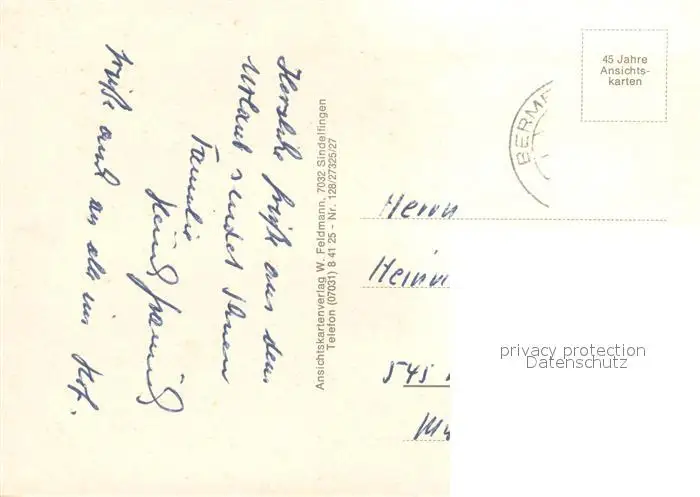 Herzliche Grüße aus dem
Urlaub sendet Ihnen
Familie
Grüße auch an alle im Hof.
Ansichtskartenverlag W. Feldmann, 7032 Sindelfingen
Telefon (07031) 8 41 25 - Nr. 128/27325/27
45 Jahre
Ansichts-
karten
BERM
Herrn
Hein
545
privacy protection
Datenschutz